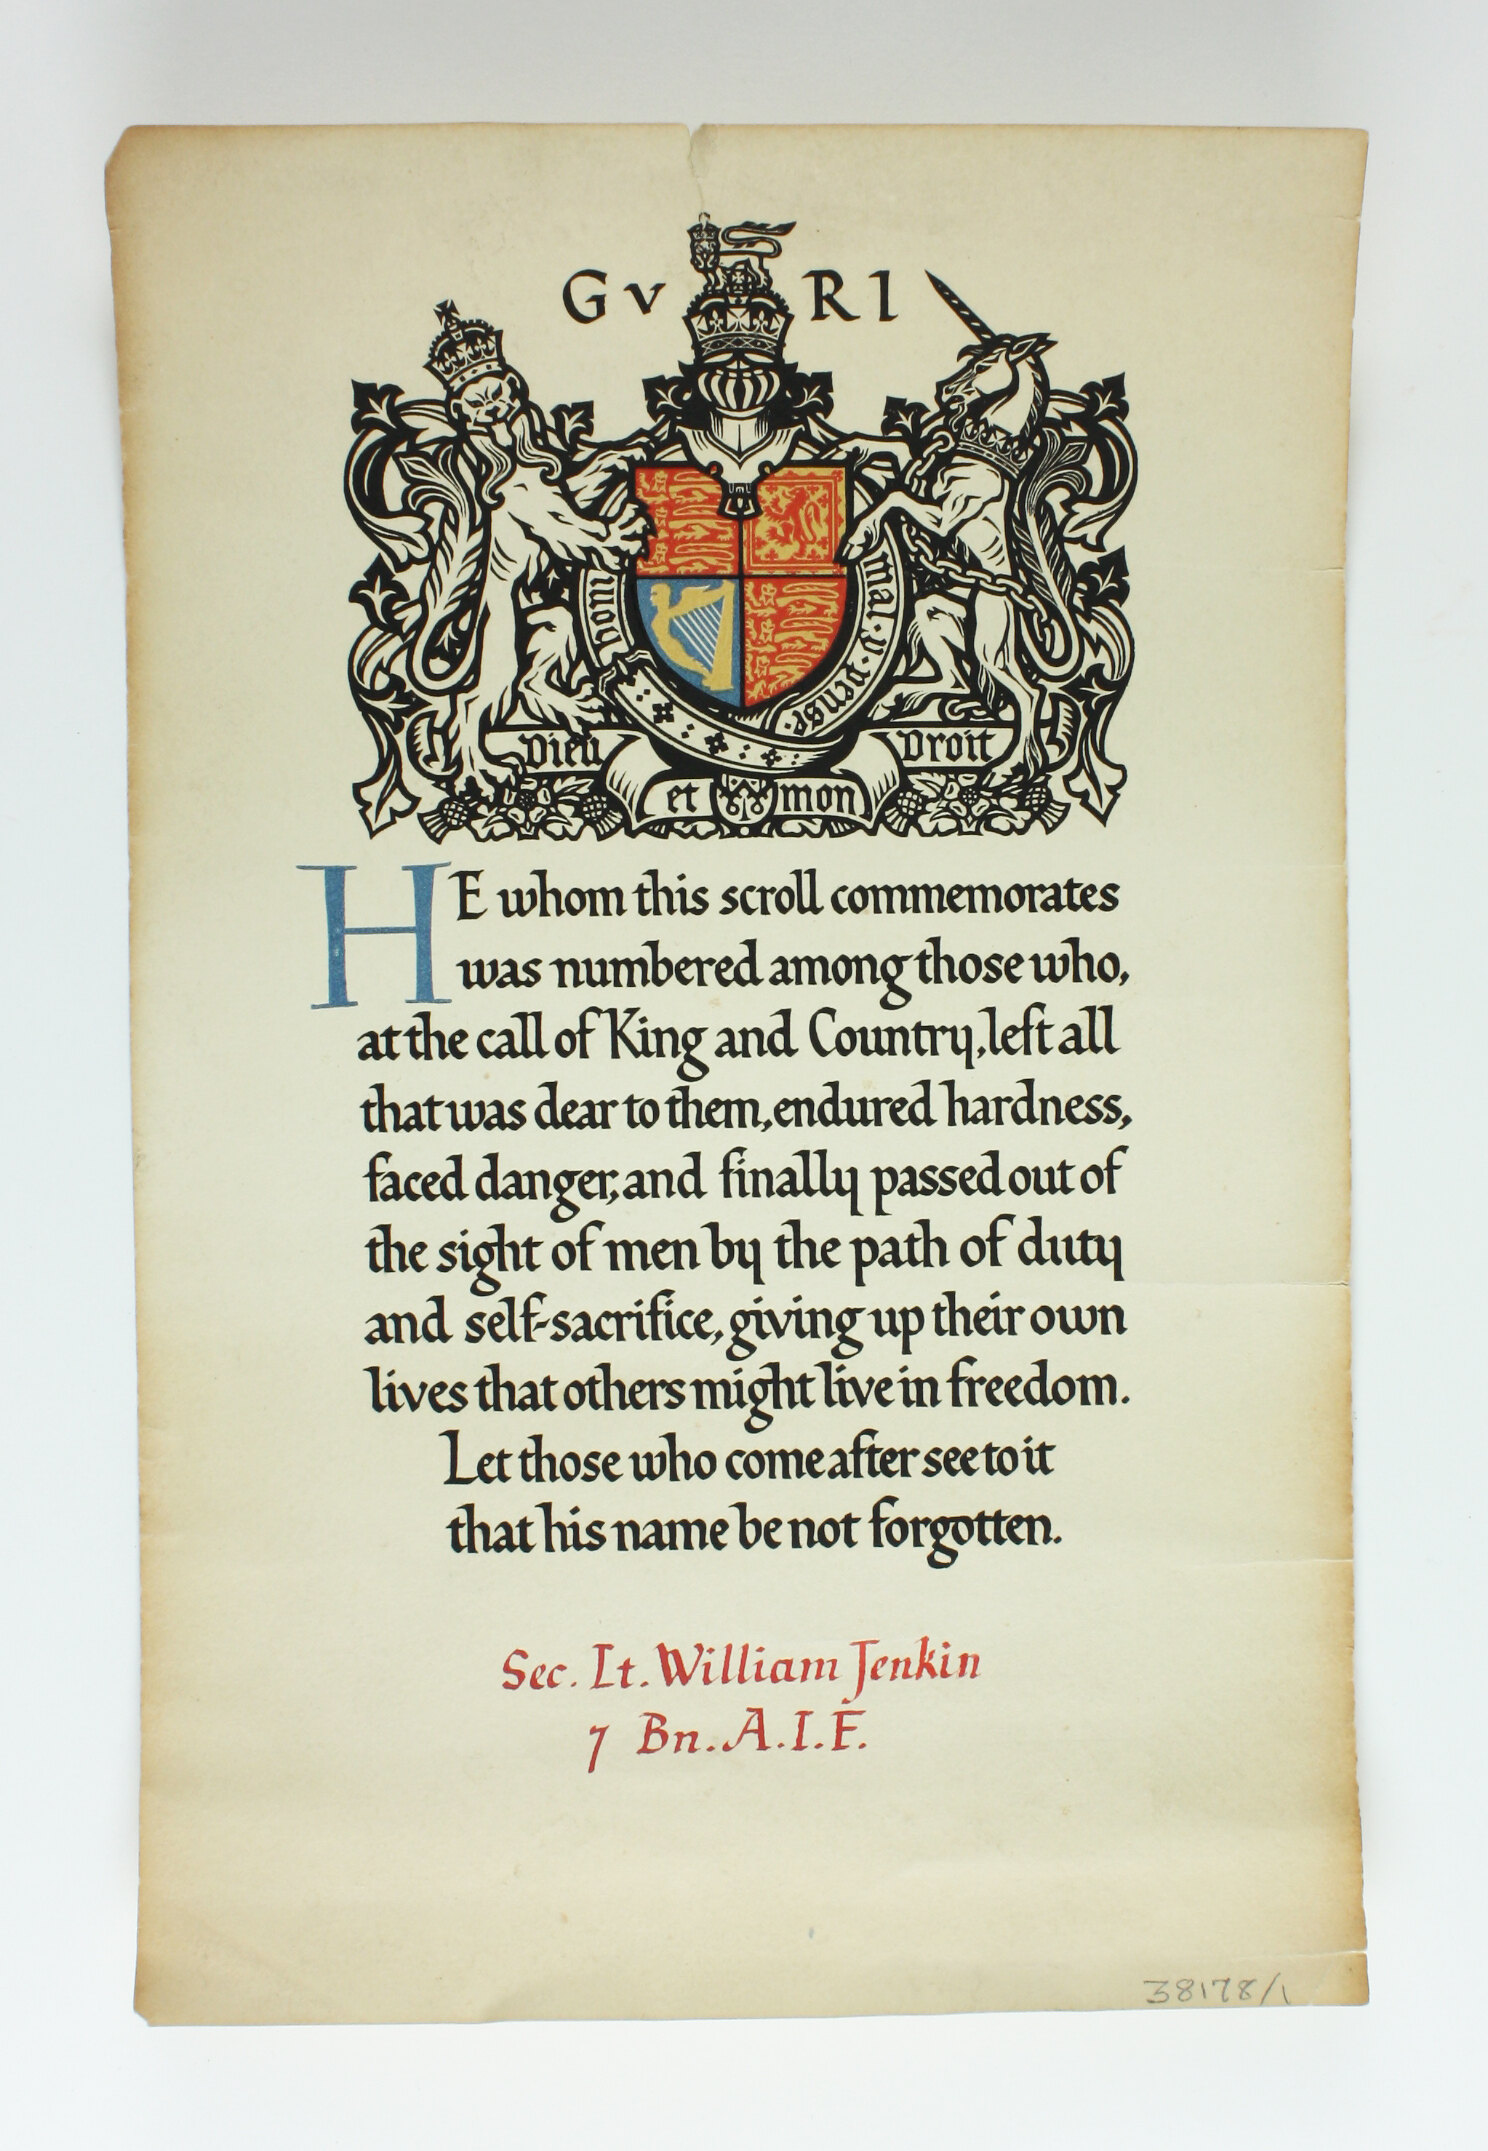 GV RI
mal·y·pense·
honi
Dieu Droit
et mon
HE whom this scroll commemorates
was numbered among those who,
at the call of King and Country, left all
that was dear to them, endured hardness,
faced danger, and finally passed out of
the sight of men by the path of duty
and self-sacrifice, giving up their own
lives that others might live in freedom.
Let those who come after see to it
that his name be not forgotten.
Sec. Lt. William Jenkin
7 Bn. A.I.F.
38178/1